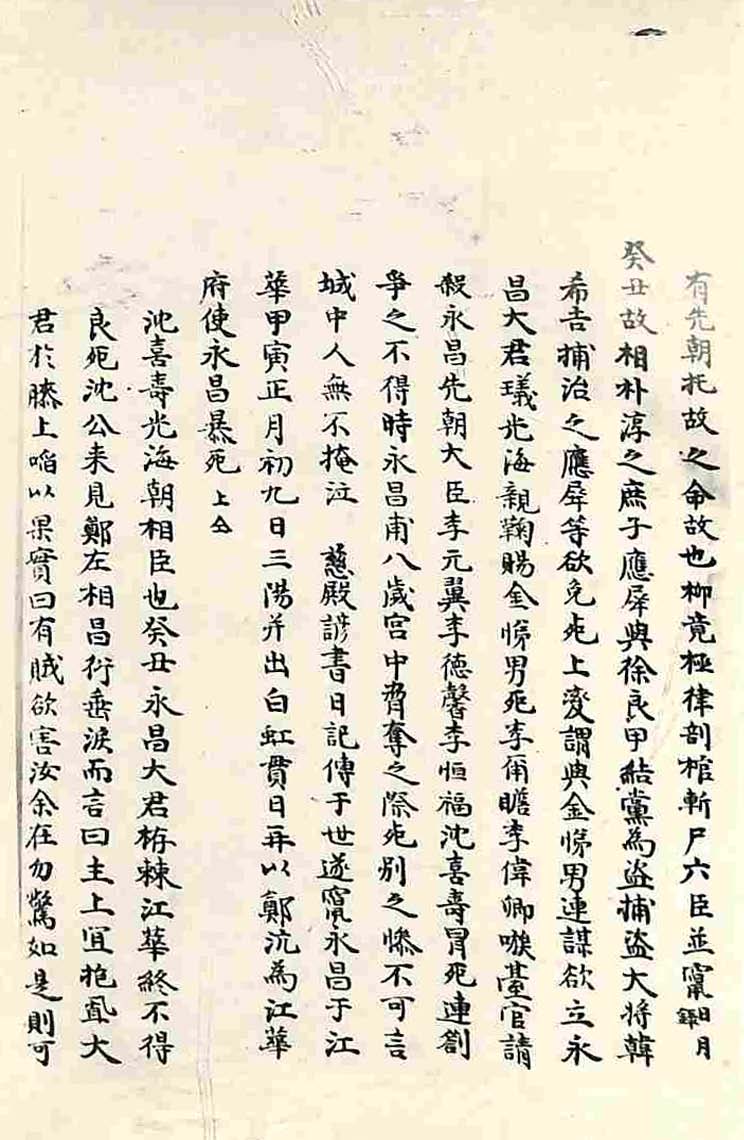 有先朝托故之命故也柳竟極律剖棺斬尸六臣並竄日月録
癸丑故相朴淳之庶子應犀與徐良甲結黨為盜捕盜大将韓
希吉捕治之應犀等欲免死上变謂與金悌男連謀欲立永
昌大君㼁光海親鞠賜金悌男死李爾瞻李偉卿嗾䑓官請
殺永昌先朝大臣李元翼李德馨李恒福沈喜壽冒死連劄
爭之不得時永昌甫八歲宮中脅奪之際死別之慘不可言
城中人無不掩泣 慈殿諺書日記傳于世遂竄永昌于江
華甲寅正月初九日三陽并出白虹貫日再以鄭沆為江華
府使永昌暴死上仝
沈喜壽光海朝相臣也癸丑永昌大君栫棘江華終不得
良死沈公来見鄭左相昌衍垂淚而言曰主上宜抱大
君於膝上啗以果實曰有贼欲害汝余在勿驚如是則可